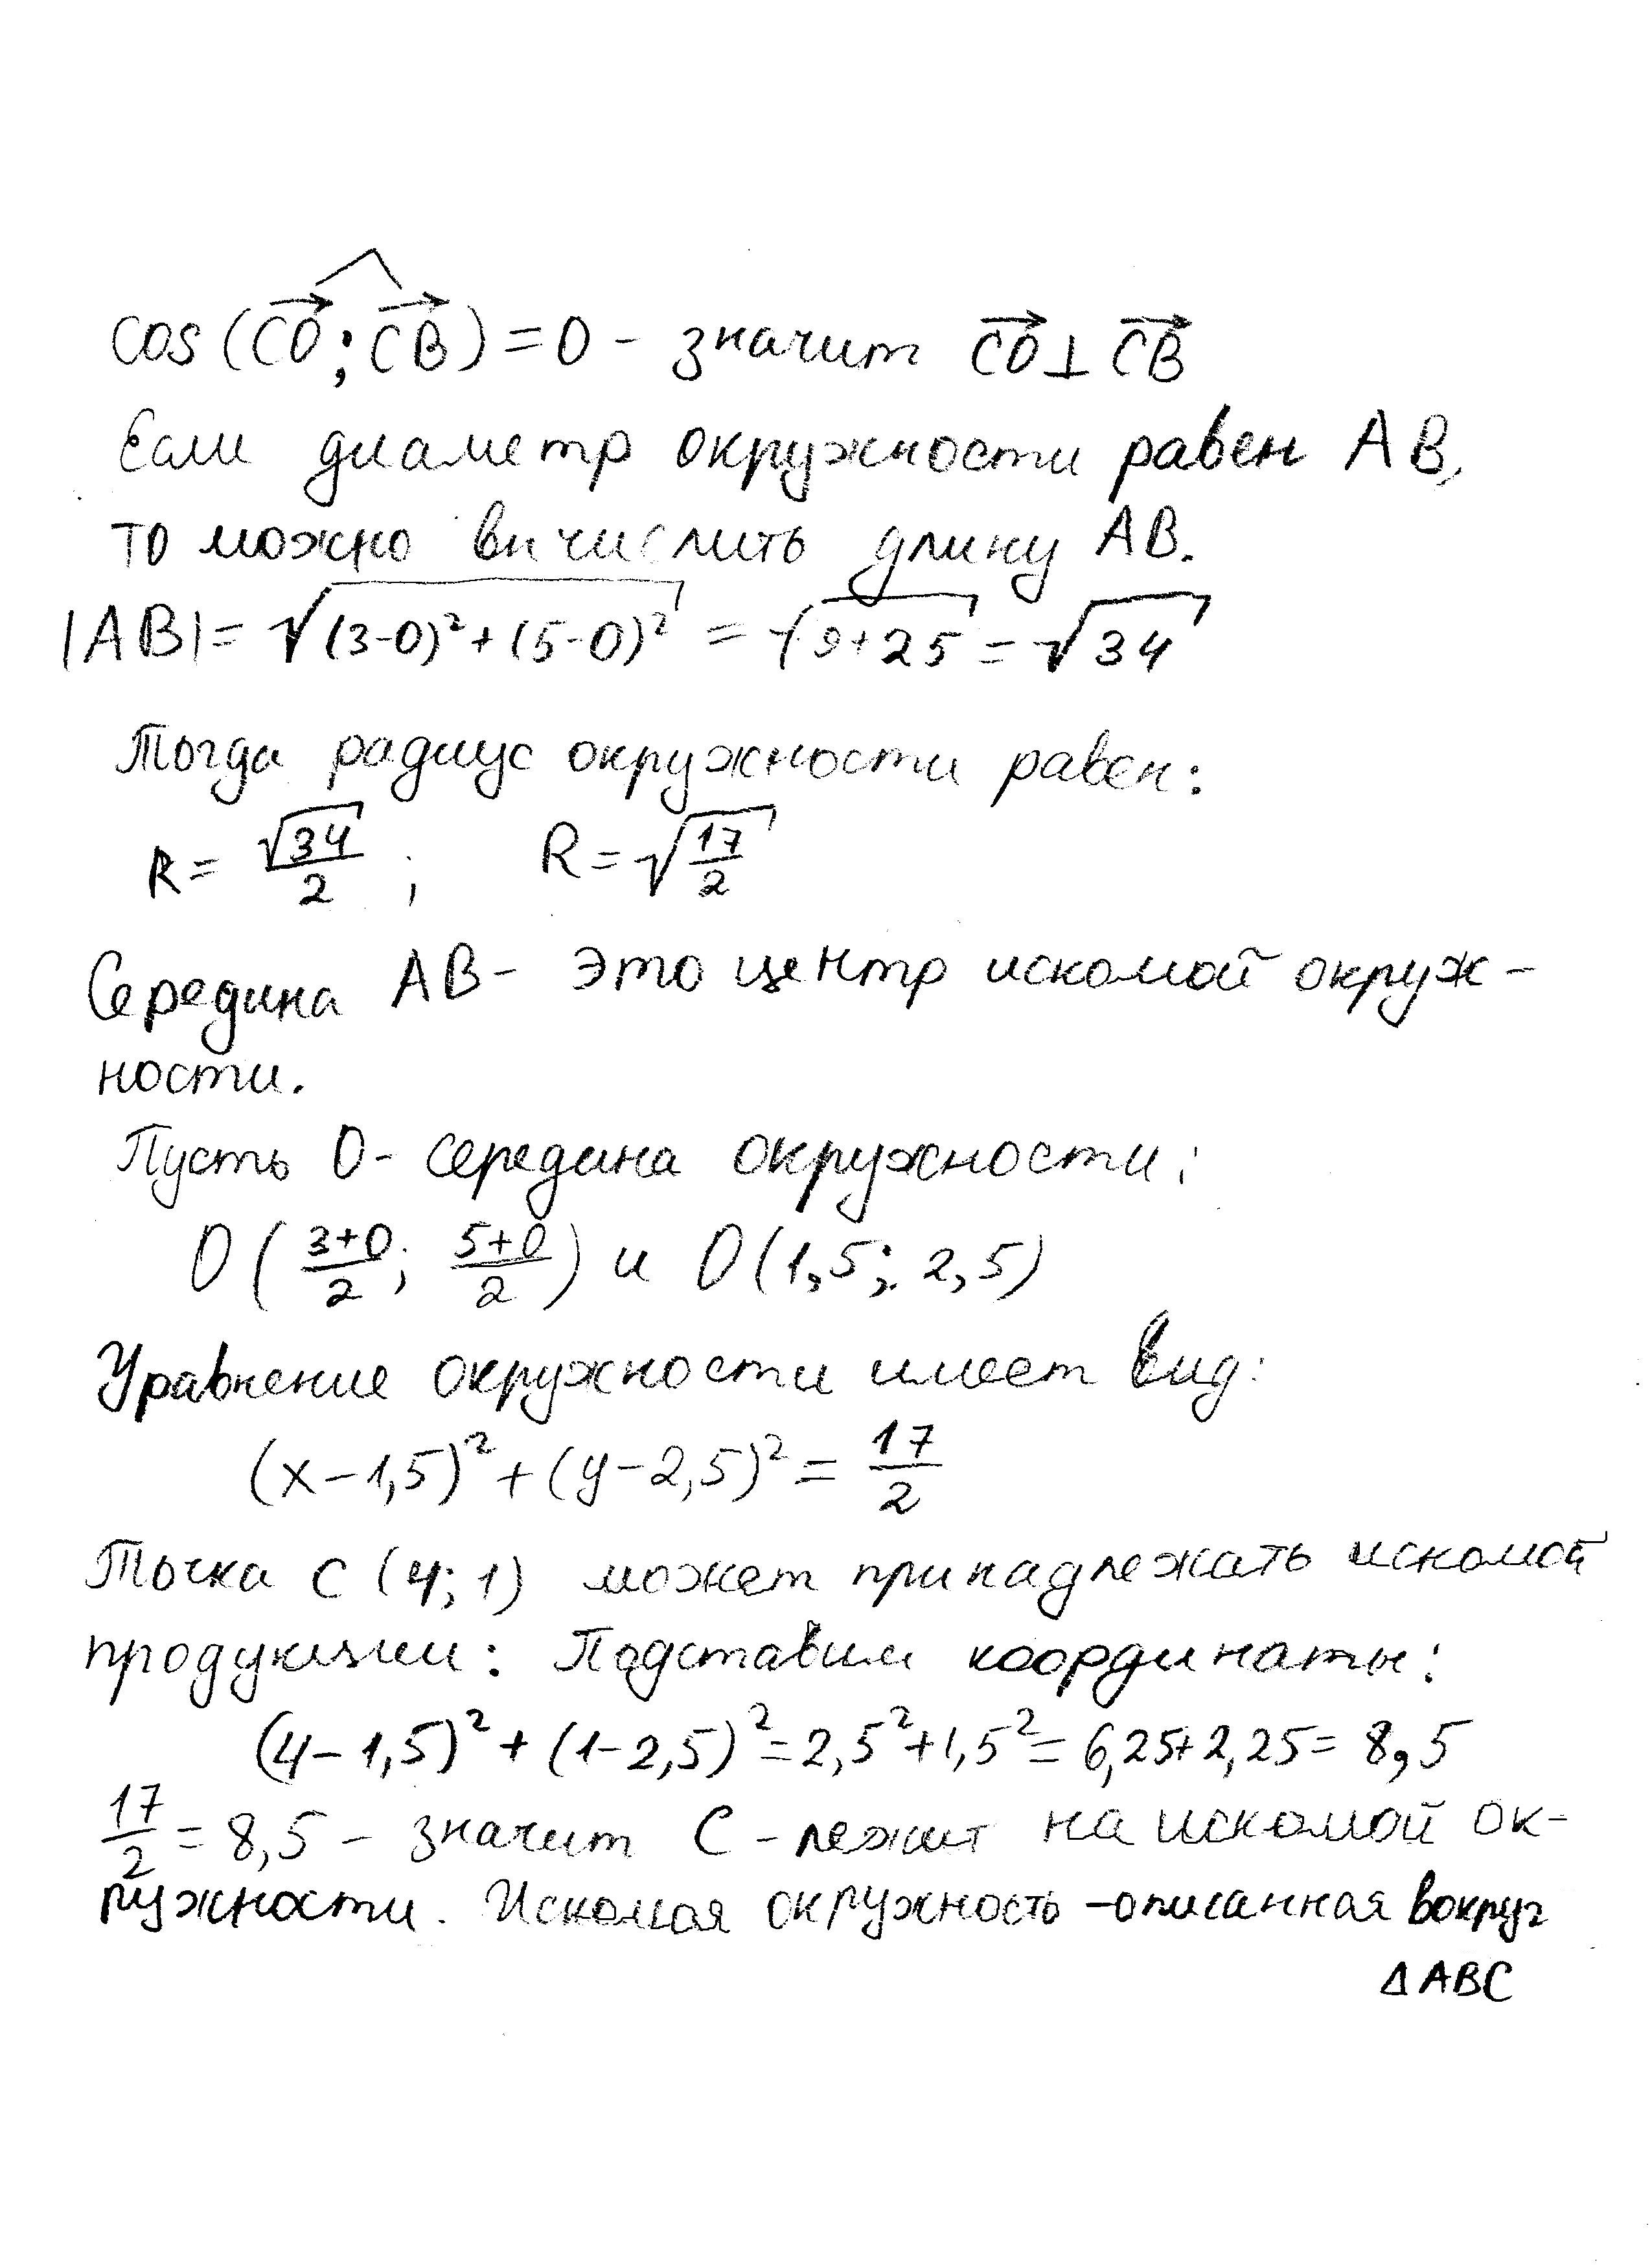 cos(CO; CB) = 0 - значит CO ⊥ CB
Если диаметр окружности равен AB,
то можно вичислить длину AB.
|AB| = √((3-0)² + (5-0)²) = √(9+25) = √34
Тогда радиус окружности равен:
R = √34/2 ; R = √(17/2)
Середина AB - это центр искомой окруж-
ности.
Пусть O - середина окружности:
O((3+0)/2; (5+0)/2) и O(1,5; 2,5)
Уравнение окружности имеет вид:
(x-1,5)² + (y-2,5)² = 17/2
Точка C (4; 1) может принадлежать искомой
продукции: Подставим координаты:
(4-1,5)² + (1-2,5)² = 2,5² + 1,5² = 6,25 + 2,25 = 8,5
17/2 = 8,5 - значит C - лежит на искомой ок-
ружности. Искомая окружность - описанная вокруг
Δ ABC